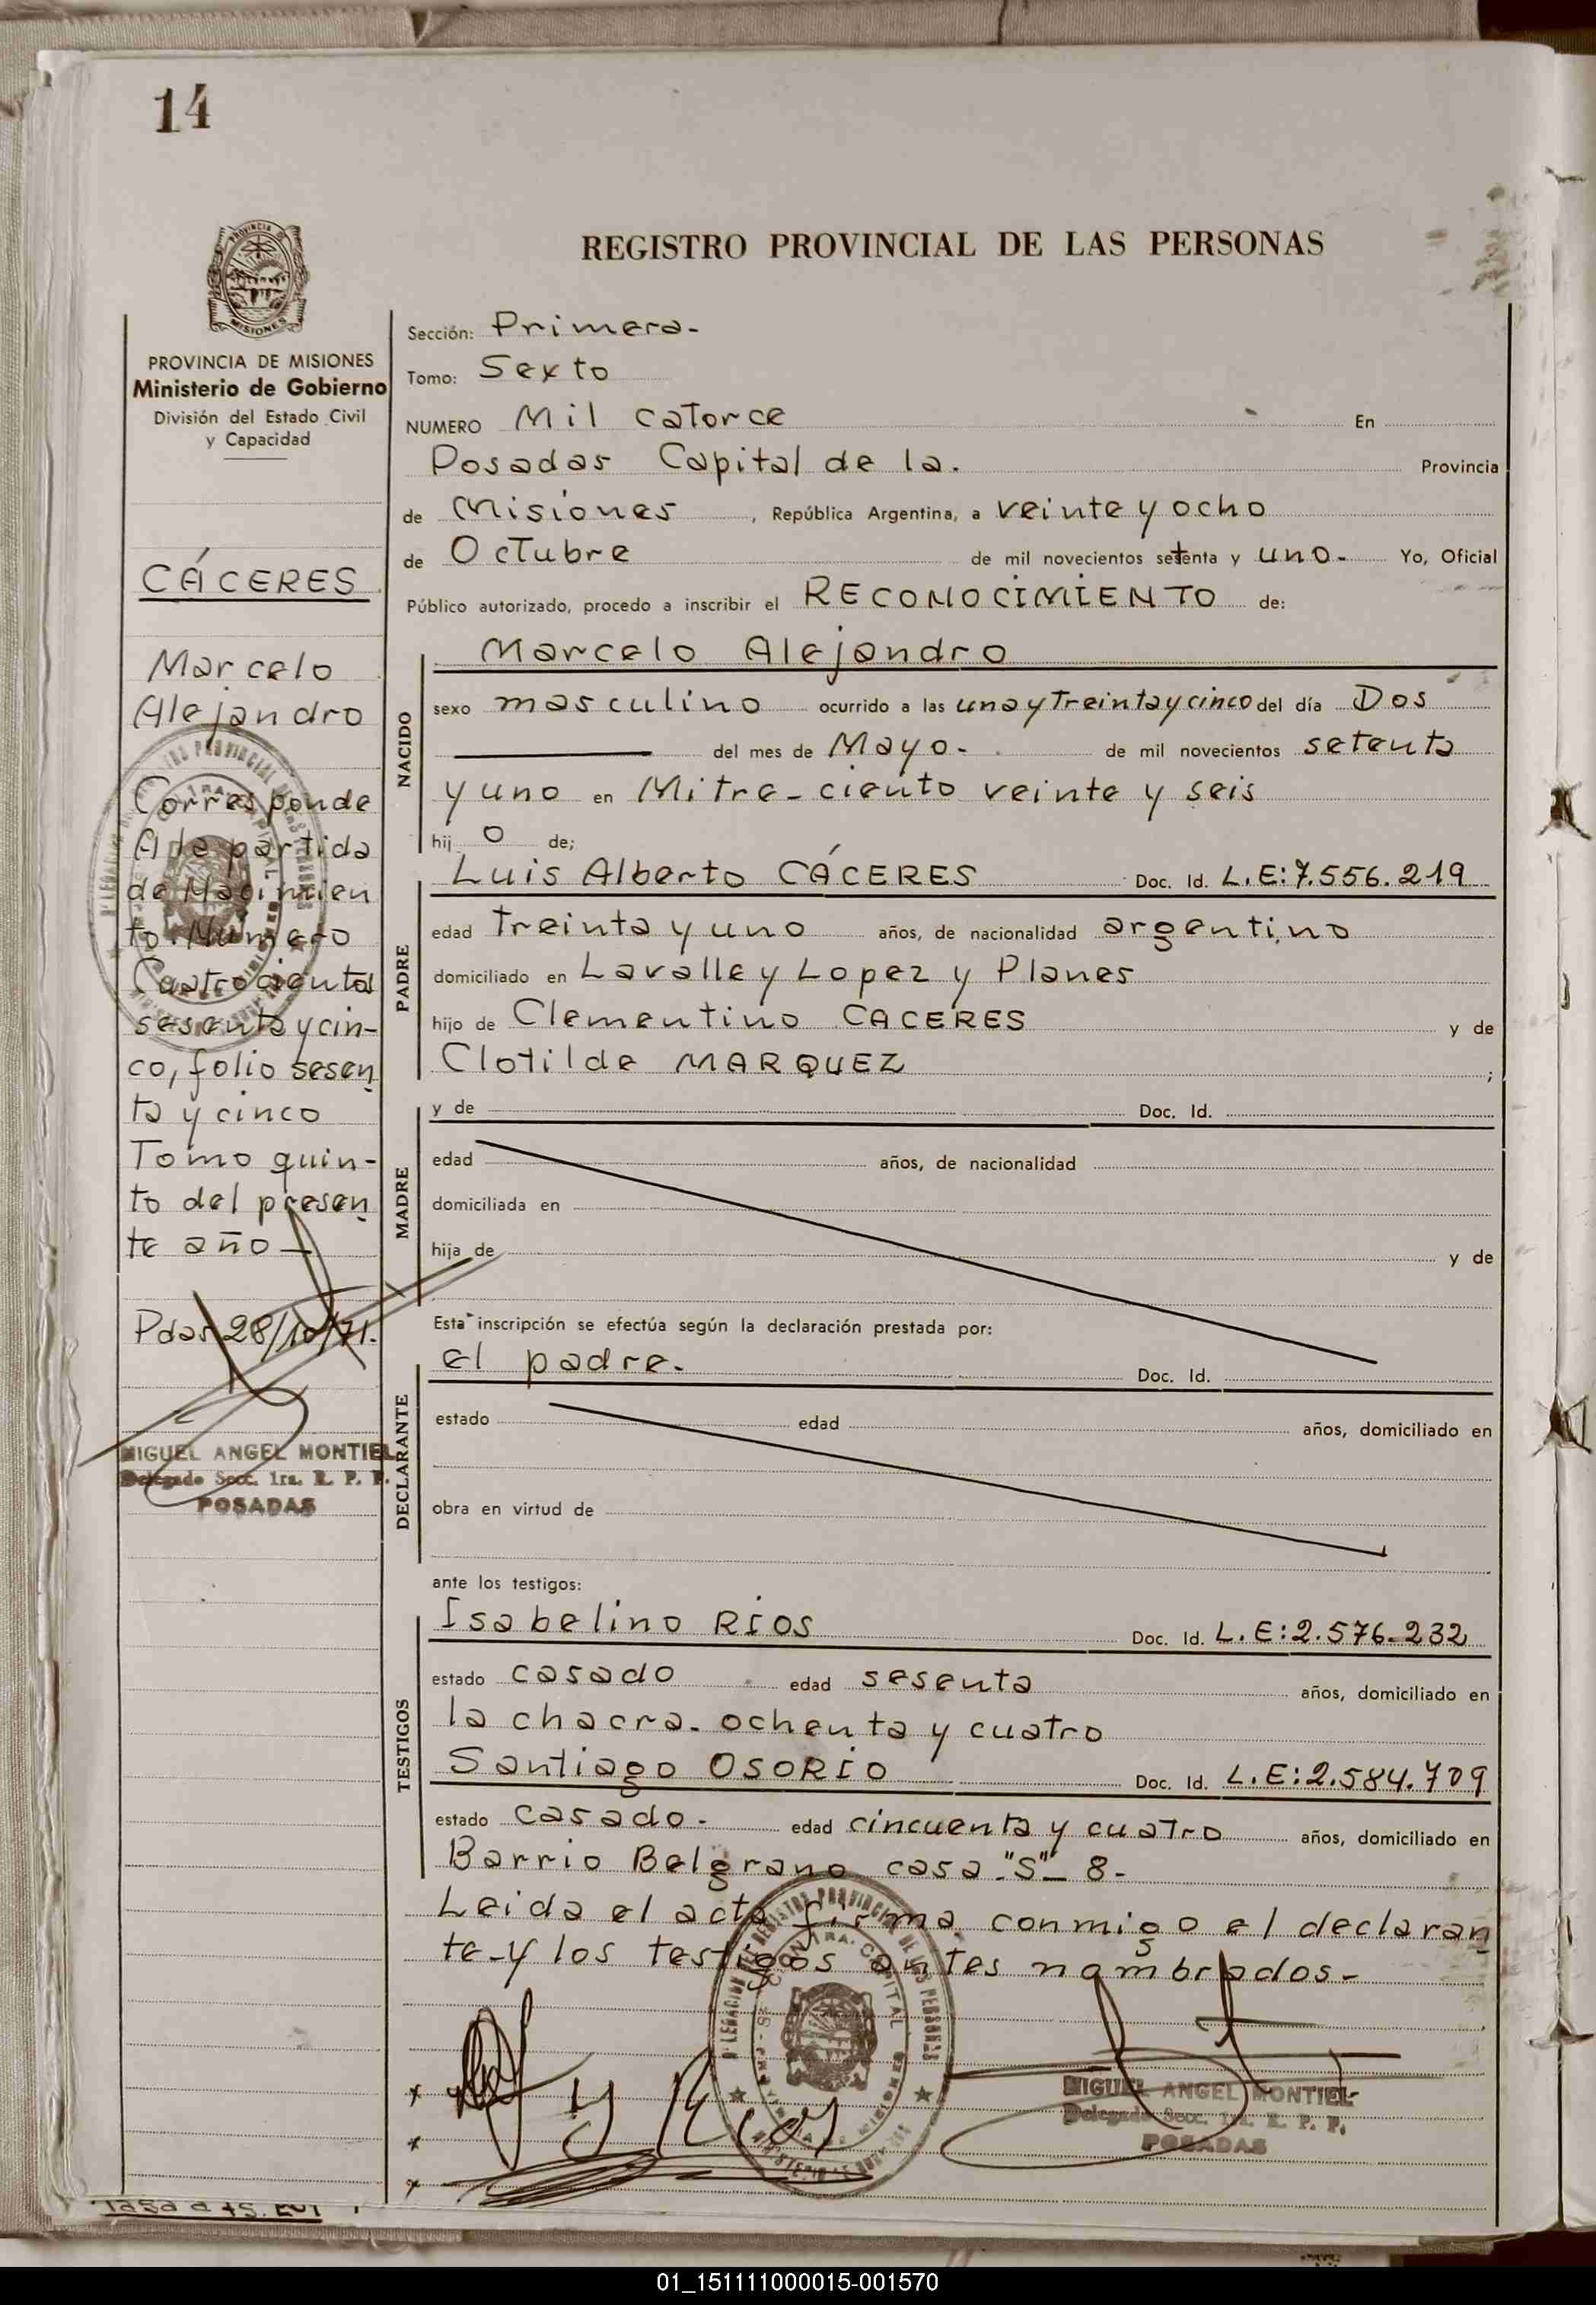 14
REGISTRO PROVINCIAL DE LAS PERSONAS
PROVINCIA DE MISIONES
Ministerio de Gobierno
División del Estado Civil
y Capacidad
CÁCERES
Marcelo
Alejandro
Corresponde
A la partida
de Nacimien
to. Número
Cuatrocientos
sesenta y cin-
co, folio sesen
ta y cinco
Tomo quin-
to del presen
te año
Pdas 28/10/71.
MIGUEL ANGEL MONTIEL
Delegado Secc. 1ra. R. P. P.
POSADAS
Sección: Primera-
Tomo: Sexto
NUMERO Mil catorce En
Posadas Capital de la. Provincia
de Misiones, República Argentina, a veinte y ocho
de Octubre de mil novecientos setenta y uno- Yo, Oficial
Público autorizado, procedo a inscribir el RECONOCIMIENTO de:
NACIDO
Marcelo Alejandro
sexo masculino ocurrido a las una y treinta y cinco del día Dos
del mes de Mayo- de mil novecientos setenta
y uno en Mitre- ciento veinte y seis
hij o de;
PADRE
Luis Alberto CÁCERES Doc. Id. L.E: 7.556.219
edad treinta y uno años, de nacionalidad argentino
domiciliado en Lavalle y Lopez y Planes
hijo de Clementino CACERES y de
Clotilde MARQUEZ ;
MADRE
y de Doc. Id.
edad años, de nacionalidad
domiciliada en
hija de y de
Esta inscripción se efectúa según la declaración prestada por:
DECLARANTE
el padre. Doc. Id.
estado edad años, domiciliado en
obra en virtud de
ante los testigos:
TESTIGOS
Isabelino RIOS Doc. Id. L.E: 2.576.232
estado casado edad sesenta años, domiciliado en
la chacra. ochenta y cuatro
Santiago OSORIO Doc. Id. L.E: 2.584.709
estado casado- edad cincuenta y cuatro años, domiciliado en
Barrio Belgrano casa "S"- 8-
Leida el acta firma conmigo el declaran
te-y los testigos antes nombrados-
MIGUEL ANGEL MONTIEL
Delegado Secc. 1ra. R. P. P.
POSADAS
01_151111000015-001570